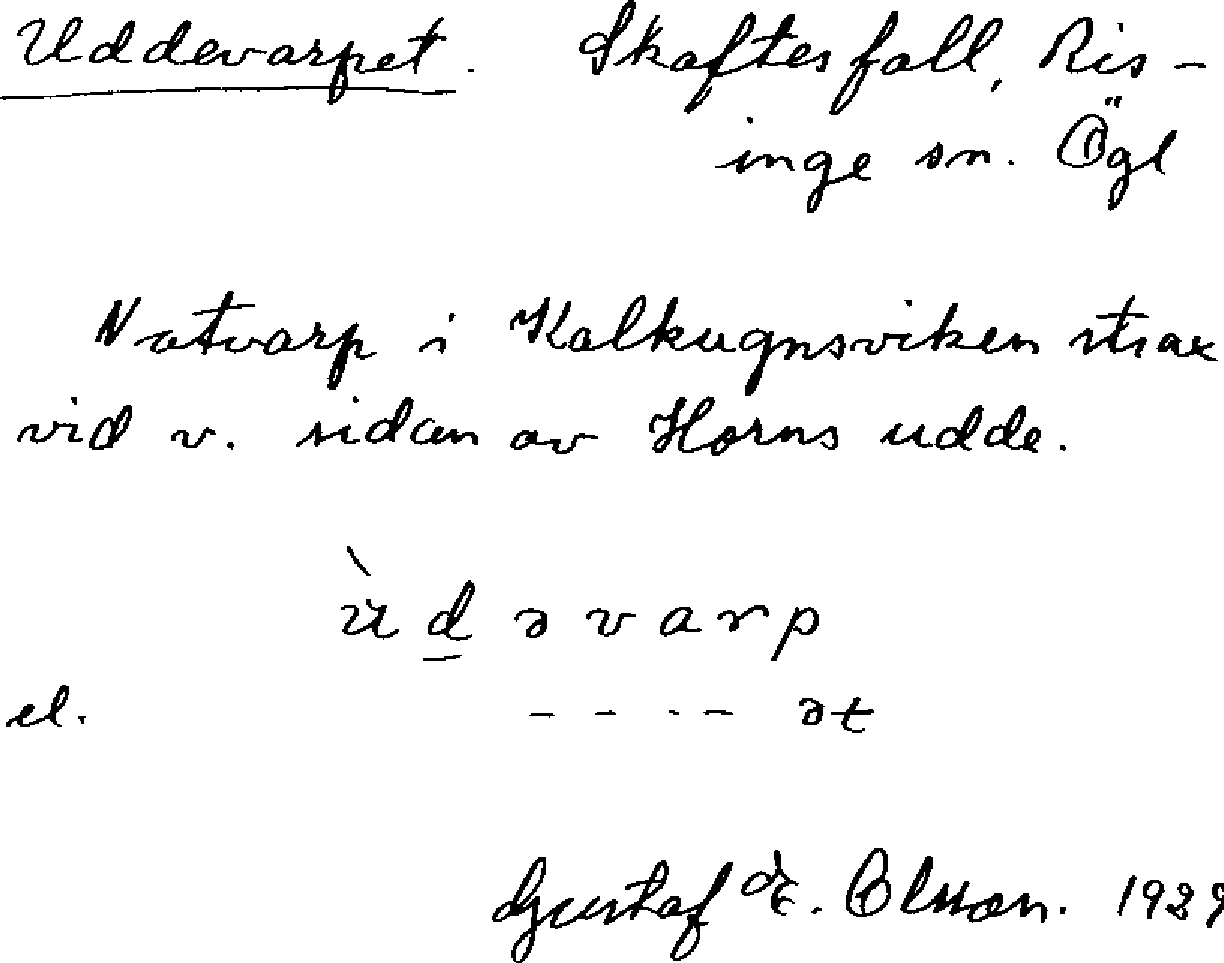 Uddevarpet. Skaftesfall, Ris-
inge sn. Ögl
Notvarp i Kalkugnsviken strax
vid v. sidan av Horns udde.
ùdəvarp
el. - - - - ət
Gustaf E. Olsson. 1929